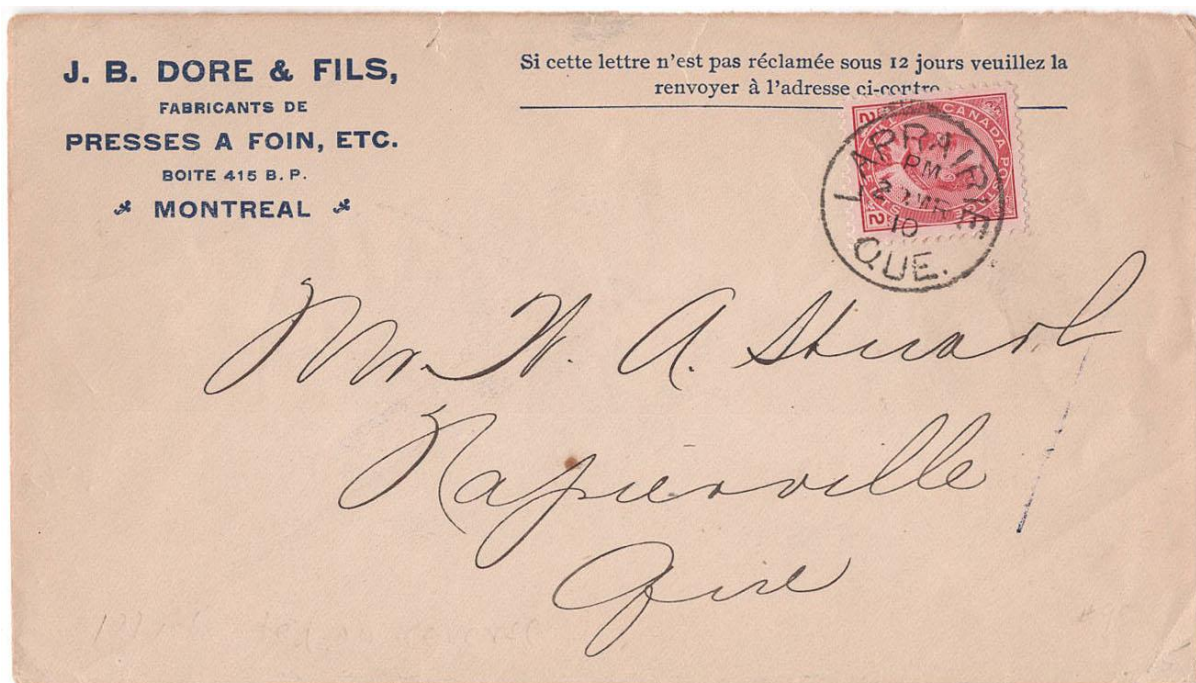 J. B. DORE & FILS,
FABRICANTS DE
PRESSES A FOIN, ETC.
BOITE 415 B. P.
MONTREAL
Si cette lettre n'est pas réclamée sous 12 jours veuillez la
renvoyer à l'adresse ci-contre
CANADA POSTAGE
2 CENTS 2
LAPRAIRIE
PM
MR
10
QUE.
Mr. W. A. Stuart
Napierville
Que